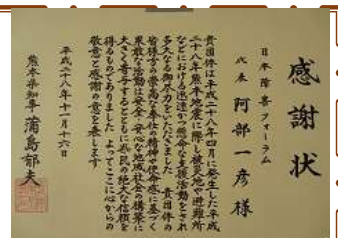 感謝状
日本障害フォーラム
代表 阿部一彦 様
貴団体は平成二十八年四月に発生した平成
二十八年熊本地震に際し被災地や避難所
などにおける迅速かつ懸命な支援活動をされ
多大なる御尽力をいただきました 貴団体の
皆様方の崇高な奉仕の精神や使命感に基づく
果敢な活動は安全・安心な地域社会の構築に
大きく寄与するとともに県民の絶大な信頼を
得るものでありました よってここに心からの
敬意と感謝の意を表します
平成二十八年十一月十六日
熊本県知事 蒲島郁夫